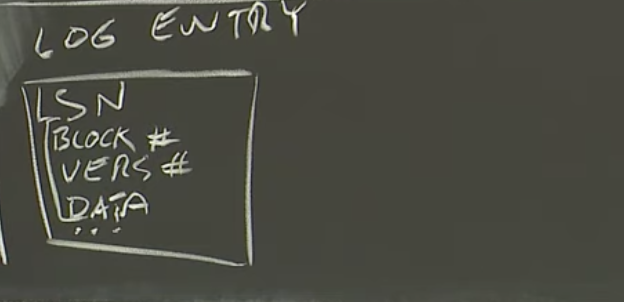 LOG ENTRY
LSN
BLOCK #
VERS #
DATA
...